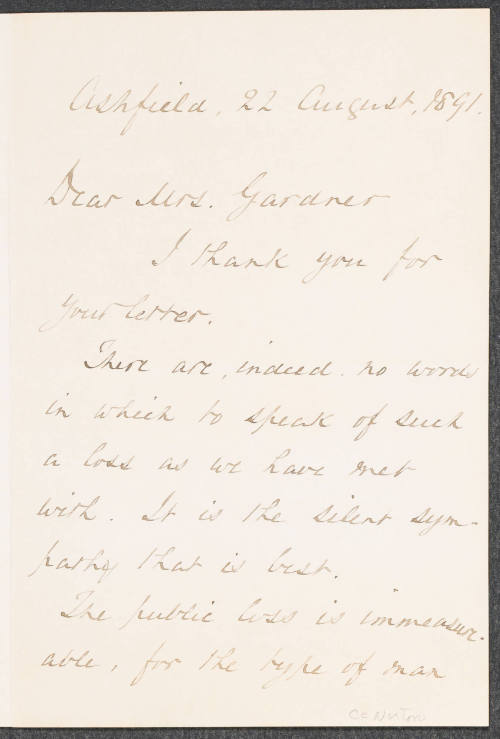 Ashfield, 22 August, 1891.
Dear Mrs. Gardner
I thank you for
your letter.
There are, indeed, no words
in which to speak of such
a loss as we have met
with. It is the silent sym-
pathy that is best.
The public loss is immeasur-
able, for the type of man